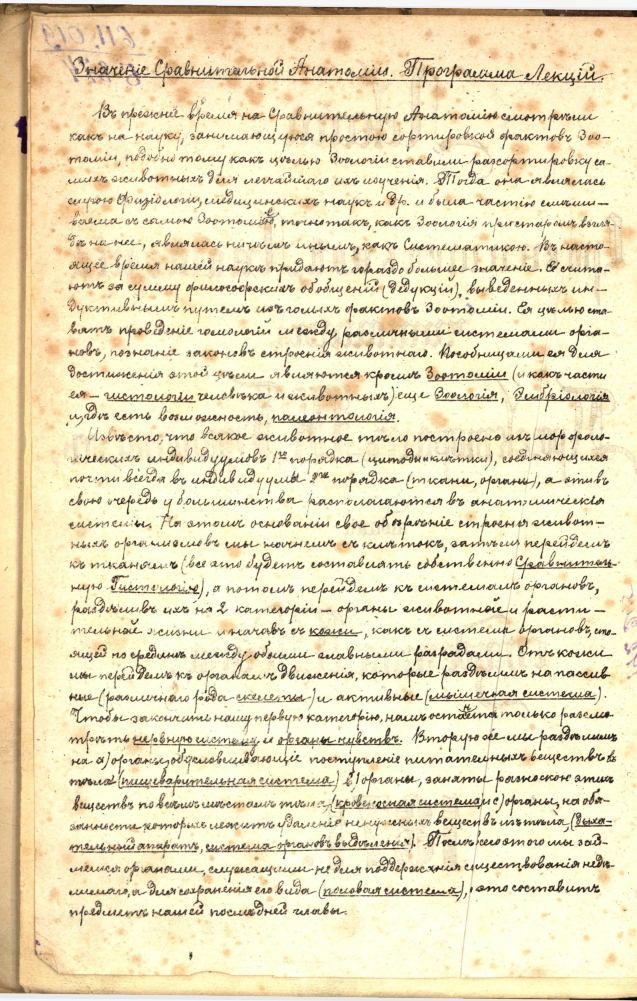 Значеніе Сравнительной Анатоміи. Программа Лекцій.
Въ прежнее время на Сравнительную Анатомію смотрѣли
какъ на науку, занимающуюся простою сортировкой фактовъ Зоо-
томіи, подобно тому какъ цѣлью Зоологіи ставили разсортировку са-
михъ животныхъ для легчайшаго ихъ изученія. Тогда она являлась
слугою Физіологіи, медицинскихъ наукъ и др. и была частію смѣши-
ваема съ самою Зоотоміею, точно такъ, какъ Зоологія при старомъ взгля-
дѣ на нее, являлась ничѣмъ инымъ, какъ Систематикою. Въ насто-
ящее время нашей наукѣ придаютъ гораздо большее значеніе. Её счита-
ютъ за сумму философскихъ обобщеній (дедукцій), выведенныхъ ин-
дуктивнымъ путемъ изъ голыхъ фактовъ Зоотоміи. Ея цѣлью ста-
вятъ проведеніе гомологій между различными системами орга-
новъ, познаніе законовъ строенія животнаго. Пособницами ея для
достиженія этой цѣли являются кромѣ Зоотоміи (и какъ части
ея – гистологіи человѣка и животныхъ) еще Зоологія, Эмбріологія
и, гдѣ есть возможность, палеонтологія.
Извѣстно, что всякое животное тѣло построено изъ морфоло-
гическихъ индивидуумовъ 1го порядка (цитоды и клѣтки), соединяющихся
почти всегда въ индивидуума 2го порядка (ткани, органы), а эти въ
свою очередь у большинства располагаются въ анатомическія
системы. На этомъ основаніи свое обозрѣніе строенія живот-
ныхъ организмовъ мы начнемъ съ клѣтокъ, затѣмъ перейдемъ
къ тканямъ (все это будетъ составлять собственно Сравнитель-
ную Гистологію), а потомъ перейдемъ къ системамъ органовъ,
раздѣливъ ихъ на 2 категоріи – органы животной и расти-
тельной жизни и начавъ съ кожи, какъ съ системы органовъ, сто-
ящей по срединѣ между обоими главными разрядами. Отъ кожи
мы перейдемъ къ органамъ движенія, которые раздѣлимъ на пассив-
ные (различнаго рода скелеты) и активные (мышечная система).
Чтобы закончить нашу первую категорію, намъ останется только разсмо-
трѣть нервную систему и органы чувствъ. Вторую же мы раздѣлимъ
на а) органы, обусловливающіе поступленіе питательныхъ веществъ въ
тѣла (пищеварительная система) в) органы, заняты разноскою этихъ
веществъ по всѣмъ частямъ тѣла (кровеносная система) и с) органы, на обя-
занности которыхъ лежитъ удаленіе ненужныхъ веществъ изъ тѣла (дыха-
тельный аппаратъ, система органовъ выдѣленія). Послѣ всего этого мы зай-
мемся органами, служащими не для поддержанія существованія недѣ-
лимаго, а для сохраненія его вида (половая система), это составитъ
предметъ нашей послѣдней главы.